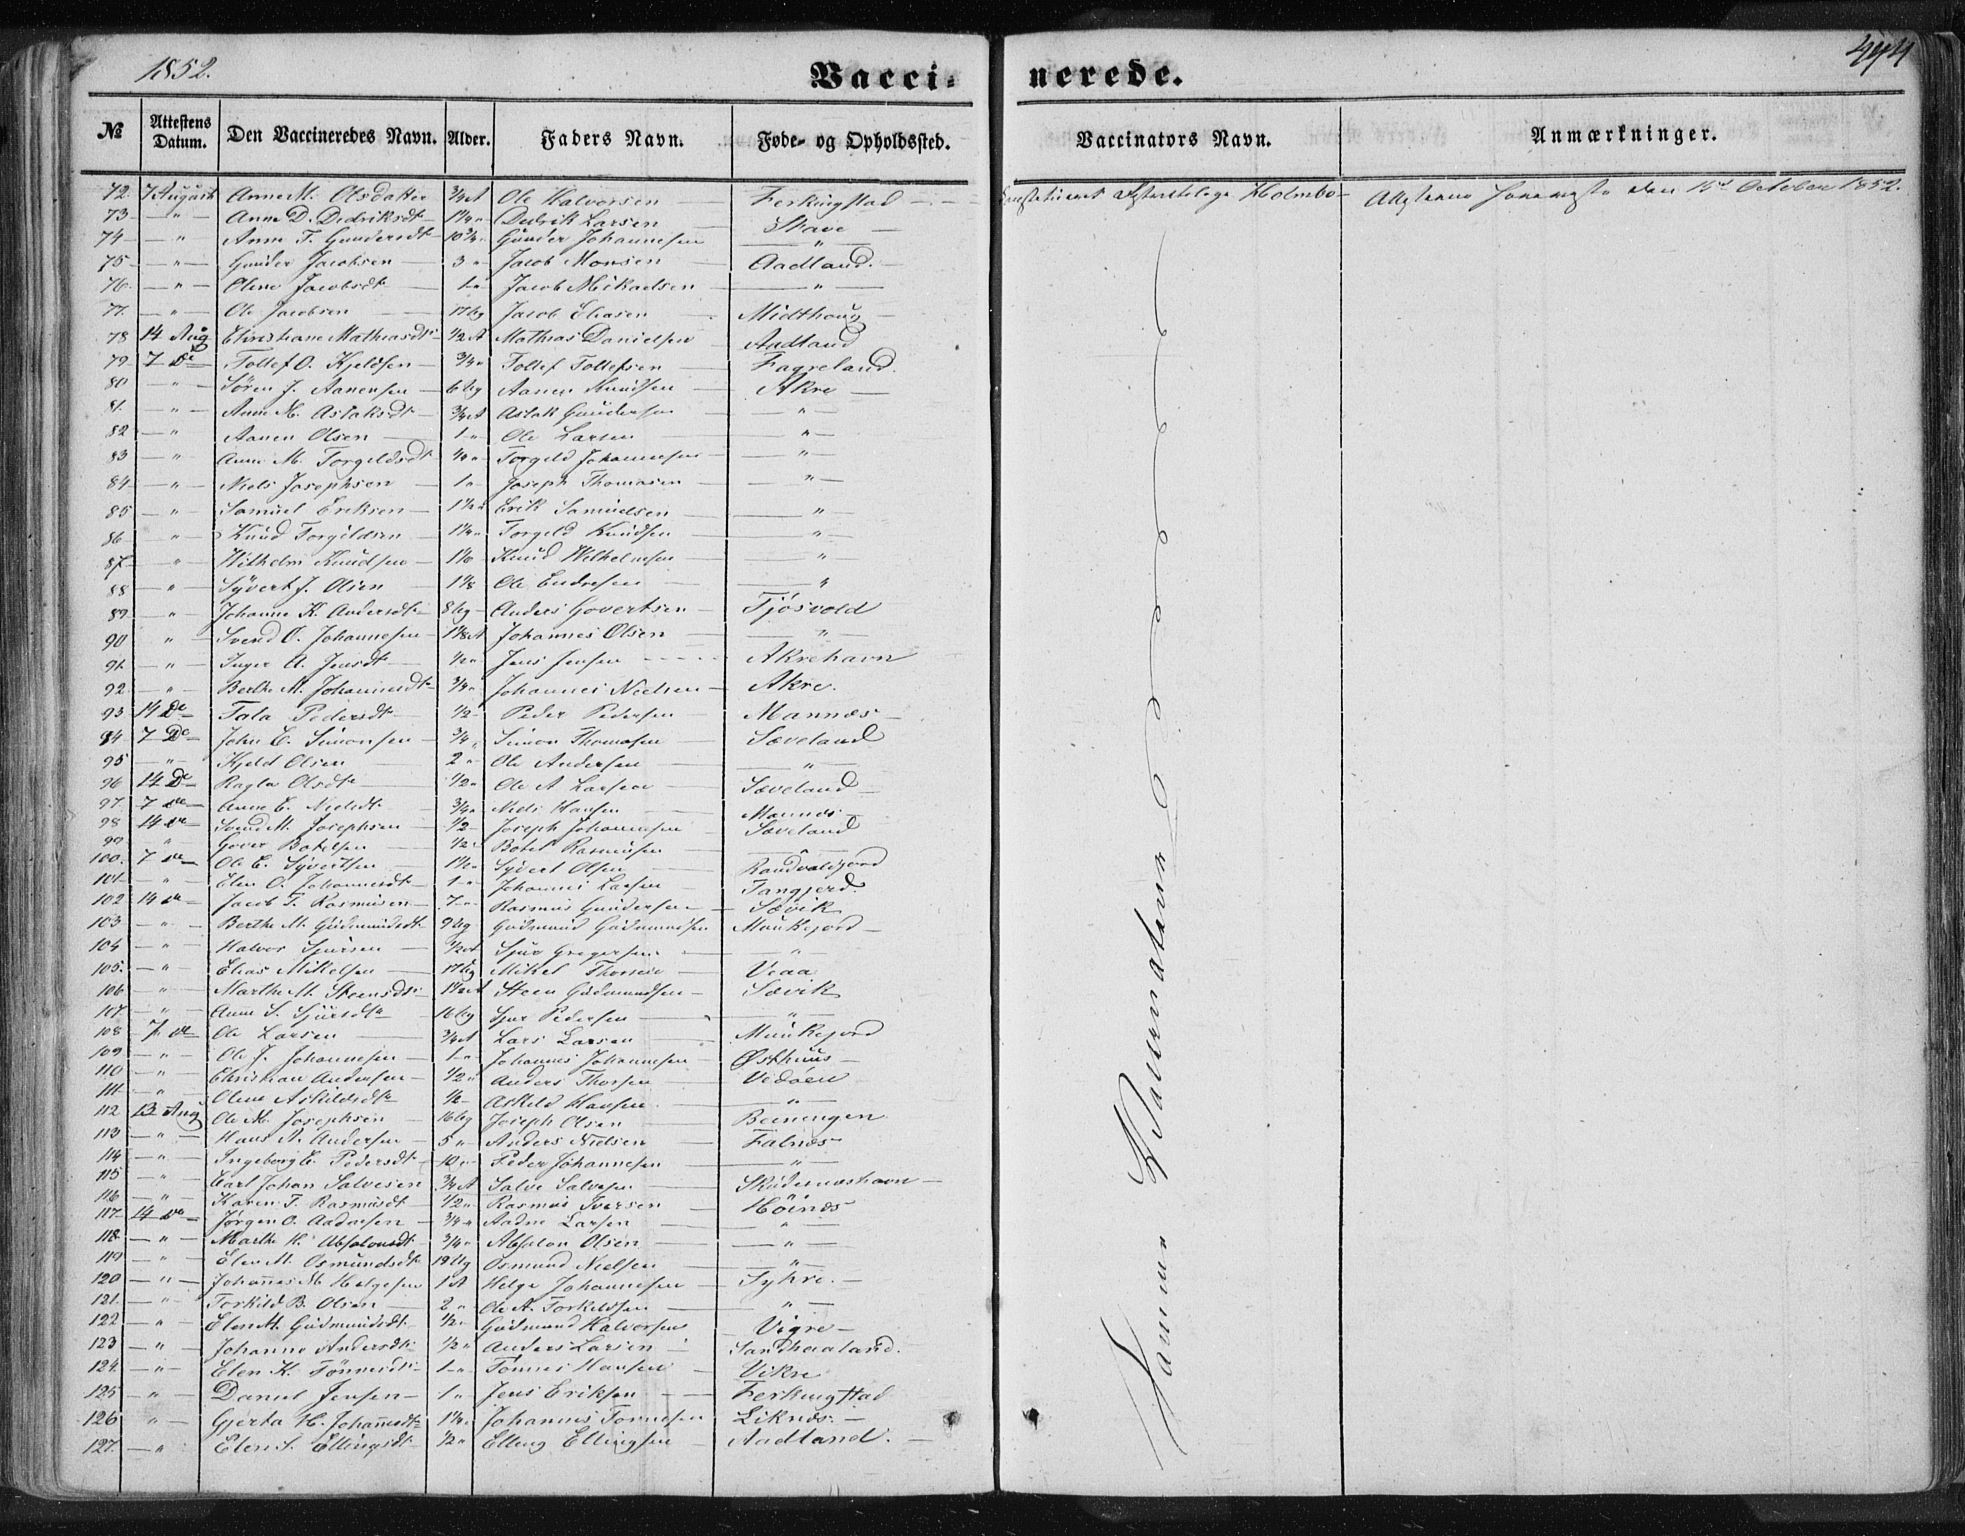 1852.
Vacci-
nerede.
494
№ Attestens Datum. Den Vaccineredes Navn. Alder. Faders Navn. Føde- og Opholdssted.
Vaccinators Navn. Anmærkninger.
72. 7 August Anne M. Olsdatter 3/4 A Ole Halvorsen Ferkingstad Holmbo Attesterne den 15de October 1852.
73 " Anne D. Dedriksdt Dedrik Larsen Stave
74 " Anne T. Gundersdt 10 3/4 Gunder Johannesen "
75 " Gunder Jacobsen 3 " Jacob Monsen Aadland.
76 " Oline Jacobsdt 1 " Jacob Mikaelsen "
77. " Ole Jacobsen 17 Ug Jacob Eliasen Midthoug
78 14 Aug Christiane Mathiasdt 1/2 A Mathias Danielsen Aadland
79. 7 de Tollef O. Kjeldsen 3/4 " Tollef Tollefsen Fagreland.
80 " Sören J. Aanensen 6 Ug Aanen Knudsen Akre
81. " Anne M. Aslaksdt 3/4 A Aslak Gundersen "
82 " Aanen Olsen 1 " Ole Larsen "
83 " Anne M. Torgeldsdt Torgeld Johannesen "
84 " Niels Josephsen 1 " Joseph Thomasen "
85 " Samuel Eriksen Erik Samuelsen "
86 " Knud Torgildsen Torgeld Knudsen "
87. " Wilhelm Knudsen Knud Wilhelmsen "
88 " Syvert J. Olsen Ole Endresen "
89 " Johanne K. Andersdt 8 Ug Anders Govertsen Tjösvold
90 " Svend O. Johannesen Johannes Olsen "
91. " Inger A. Jensdt 1/2 " Jens Jensen Akrehavn
92 " Berthe M. Johannesdt 3/4 " Johannes Nielsen Akre.
93 14 De Tala Pedersdt 1/2 Peder Pedersen Mannæs
94 7 De John E. Simonsen 3/4 " Simon Thomasen Sæveland
95 " Kjeld Olsen 2 " Ole Andersen "
96 14 De Ragla Olsdt 1/2 " Ole A Larsen Sæveland
97. 7 de Anne E. Nielsdt 3/4 " Niels Hansen Mannes
98 14 de Svend M. Josephsen 1/2 Joseph Johannesen Sæveland
99 " Gover Botelsen 1/2 Botel Rasmusen
100. 7 de Ole E. Syvertsen Syvert Olsen
101 " Elen O. Johannesdt 1 " Johannes Larsen Tangjerd.
102 14 de Jacob T. Rasmusen 7 " Rasmus Gundersen Sævik
103 " Berthe M. Gudmundsdt 9 Ug Gudmund Gudmundsen Munkejord
104 " Halvor Sjursen Sjur Gregersen "
105. " Elias Mikelsen 17 Ug Mikel Thorsen Veaa
106 " Marthe M. Steensdt Steen Gudmundsen Sævik
107. " Anne S. Sjursdtr 16 Ug Sjur Pedersen "
108 7 de Ole Larsen 3/4 A Lars Larsen Munkejord
109 " Ole J. Johannesen 1 " Johannes Johannesen Østhuus
110 " Christian Andersen 1/2 " Anders Thorsen Vedöen
111 " Oline Askildsdtr Askild Hansen "
112 13 Aug Ole M. Josephsen 16 Ug Joseph Olsen Beiningen
113 " Hans Andersen 5 " Anders Nielsen Falnæs
114 " Ingeborg E. Pedersdt 10 " Peder Johannesen "
115 " Carl Johan Salvesen 3/4 A Salve Salvesen Skudesneshavn
116 " Karen T. Rasmusdt 1/2 " Rasmus Iversen Höinæs
117. 14 de Jörgen O. Aadnesen 3/4 " Aadne Larsen "
118. " Marthe H. Absalonsdt 3/4 " Absalon Olsen "
119 " Elen M. Osmundsdt 19 Ug Osmund Nielsen "
120 " Johannes M. Helgesen 1 A Helge Johannesen Syhre.
121. " Torkild B. Olsen 2 " Ole A. Torkildsen "
122 " Elen M. Gudmundsdt 1/2 " Gudmund Halvorsen Vigre
123 " Johanne Andersdt 1/2 " Anders Larsen Sandhaaland.
124. " Elen K. Tönnesdt 1 " Tönnes Hansen Vikre
125 " Daniel Jensen 1 " Jens Eriksen Ferkingstad
126 " Gjerta H. Johannesdt Johannes Tönnesen Liknæs.
127. " Elen S. Ellingsdt 1/2 " Elling Ellingsen Aadland.
Samme